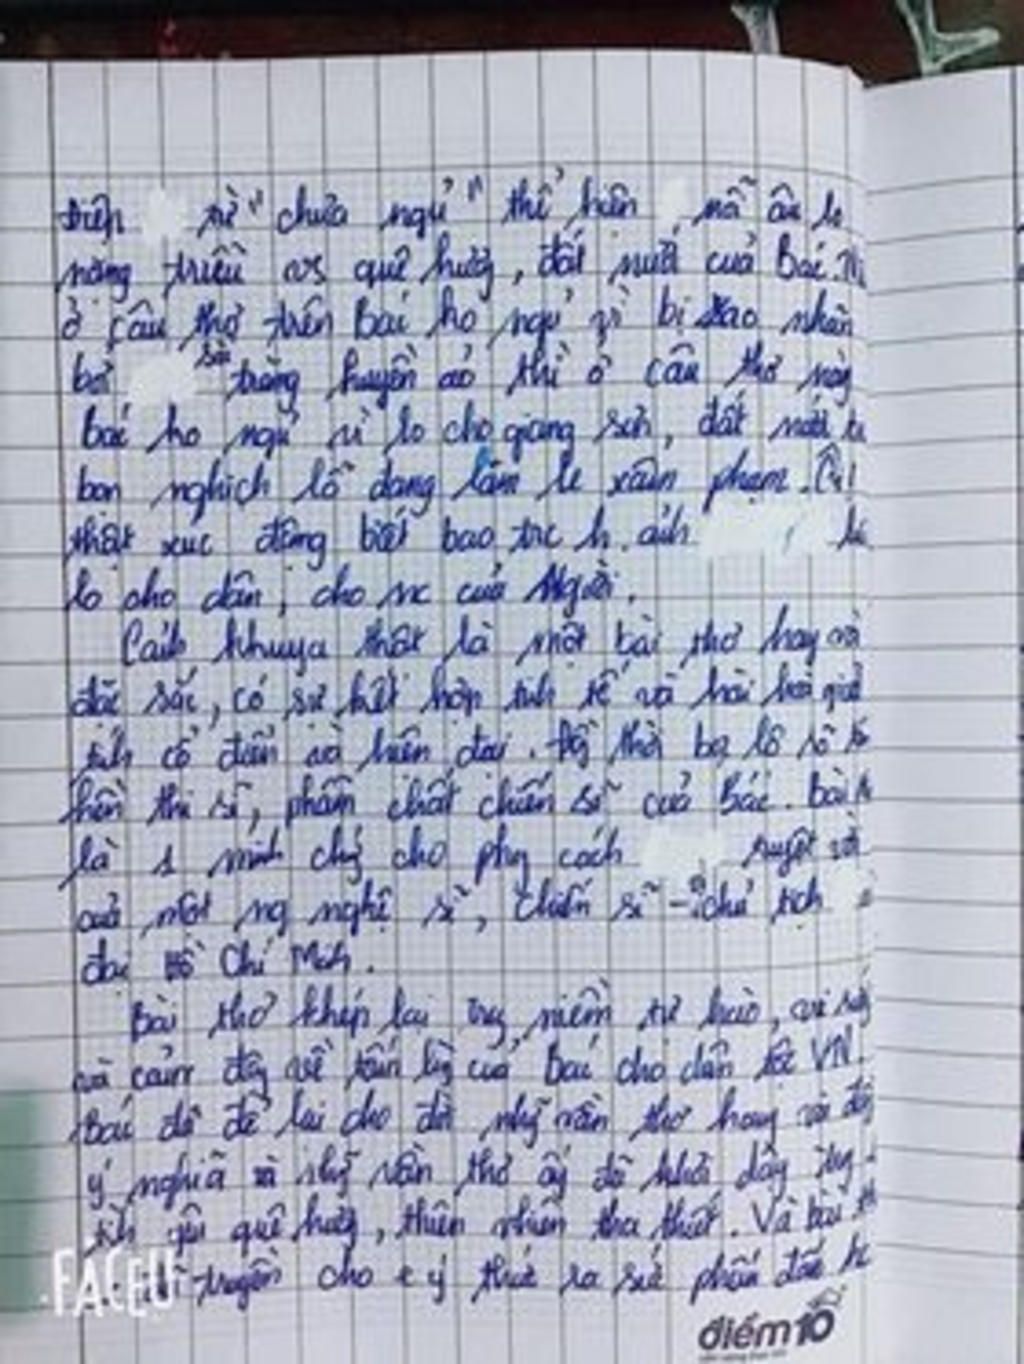 từ "chưa ngủ" thể hiện nỗi âu lo
nặng trĩu vs quê hươg, đất nước của Bác.
ở câu thơ trên Bác ko ngủ vì bị xao nhãn
bởi trăng huyền ảo thì ở câu thơ này
bác ko ngủ vì lo cho giang sơn, đất nước
bọn nghịch lỗ đang lăm le xâm phạm.
thật xúc động biết bao trc h. ảnh
lo cho dân, cho nc của Người.
Cảnh khuya thật là một bài thơ hay và
đặc sắc, có sự kết hợp tinh tế và hài hoà giữa
tính cổ điển và hiện đại. thời bộc lộ rõ
hồn thi sĩ, phẩm chất chiến sĩ của Bác. bài
là 1 minh chứg cho phg cách tuyệt vời
của một ng nghệ sĩ, chiến sĩ - chủ tịch
đại Hồ Chí Minh.
Bài thơ khép lại trg niềm tự hào,
và cảm độg về của Bác cho dân tộc VN
Bác đã để lại cho đời nhữg vần thơ hay và
ý nghĩa và nhữg vần thơ ấy đã khơi dậy trg
tình yêu quê hươg, thiên nhiên tha thiết. Và bài
truyền cho e ý thức ra sức phấn đấu
FACEU
điểm10